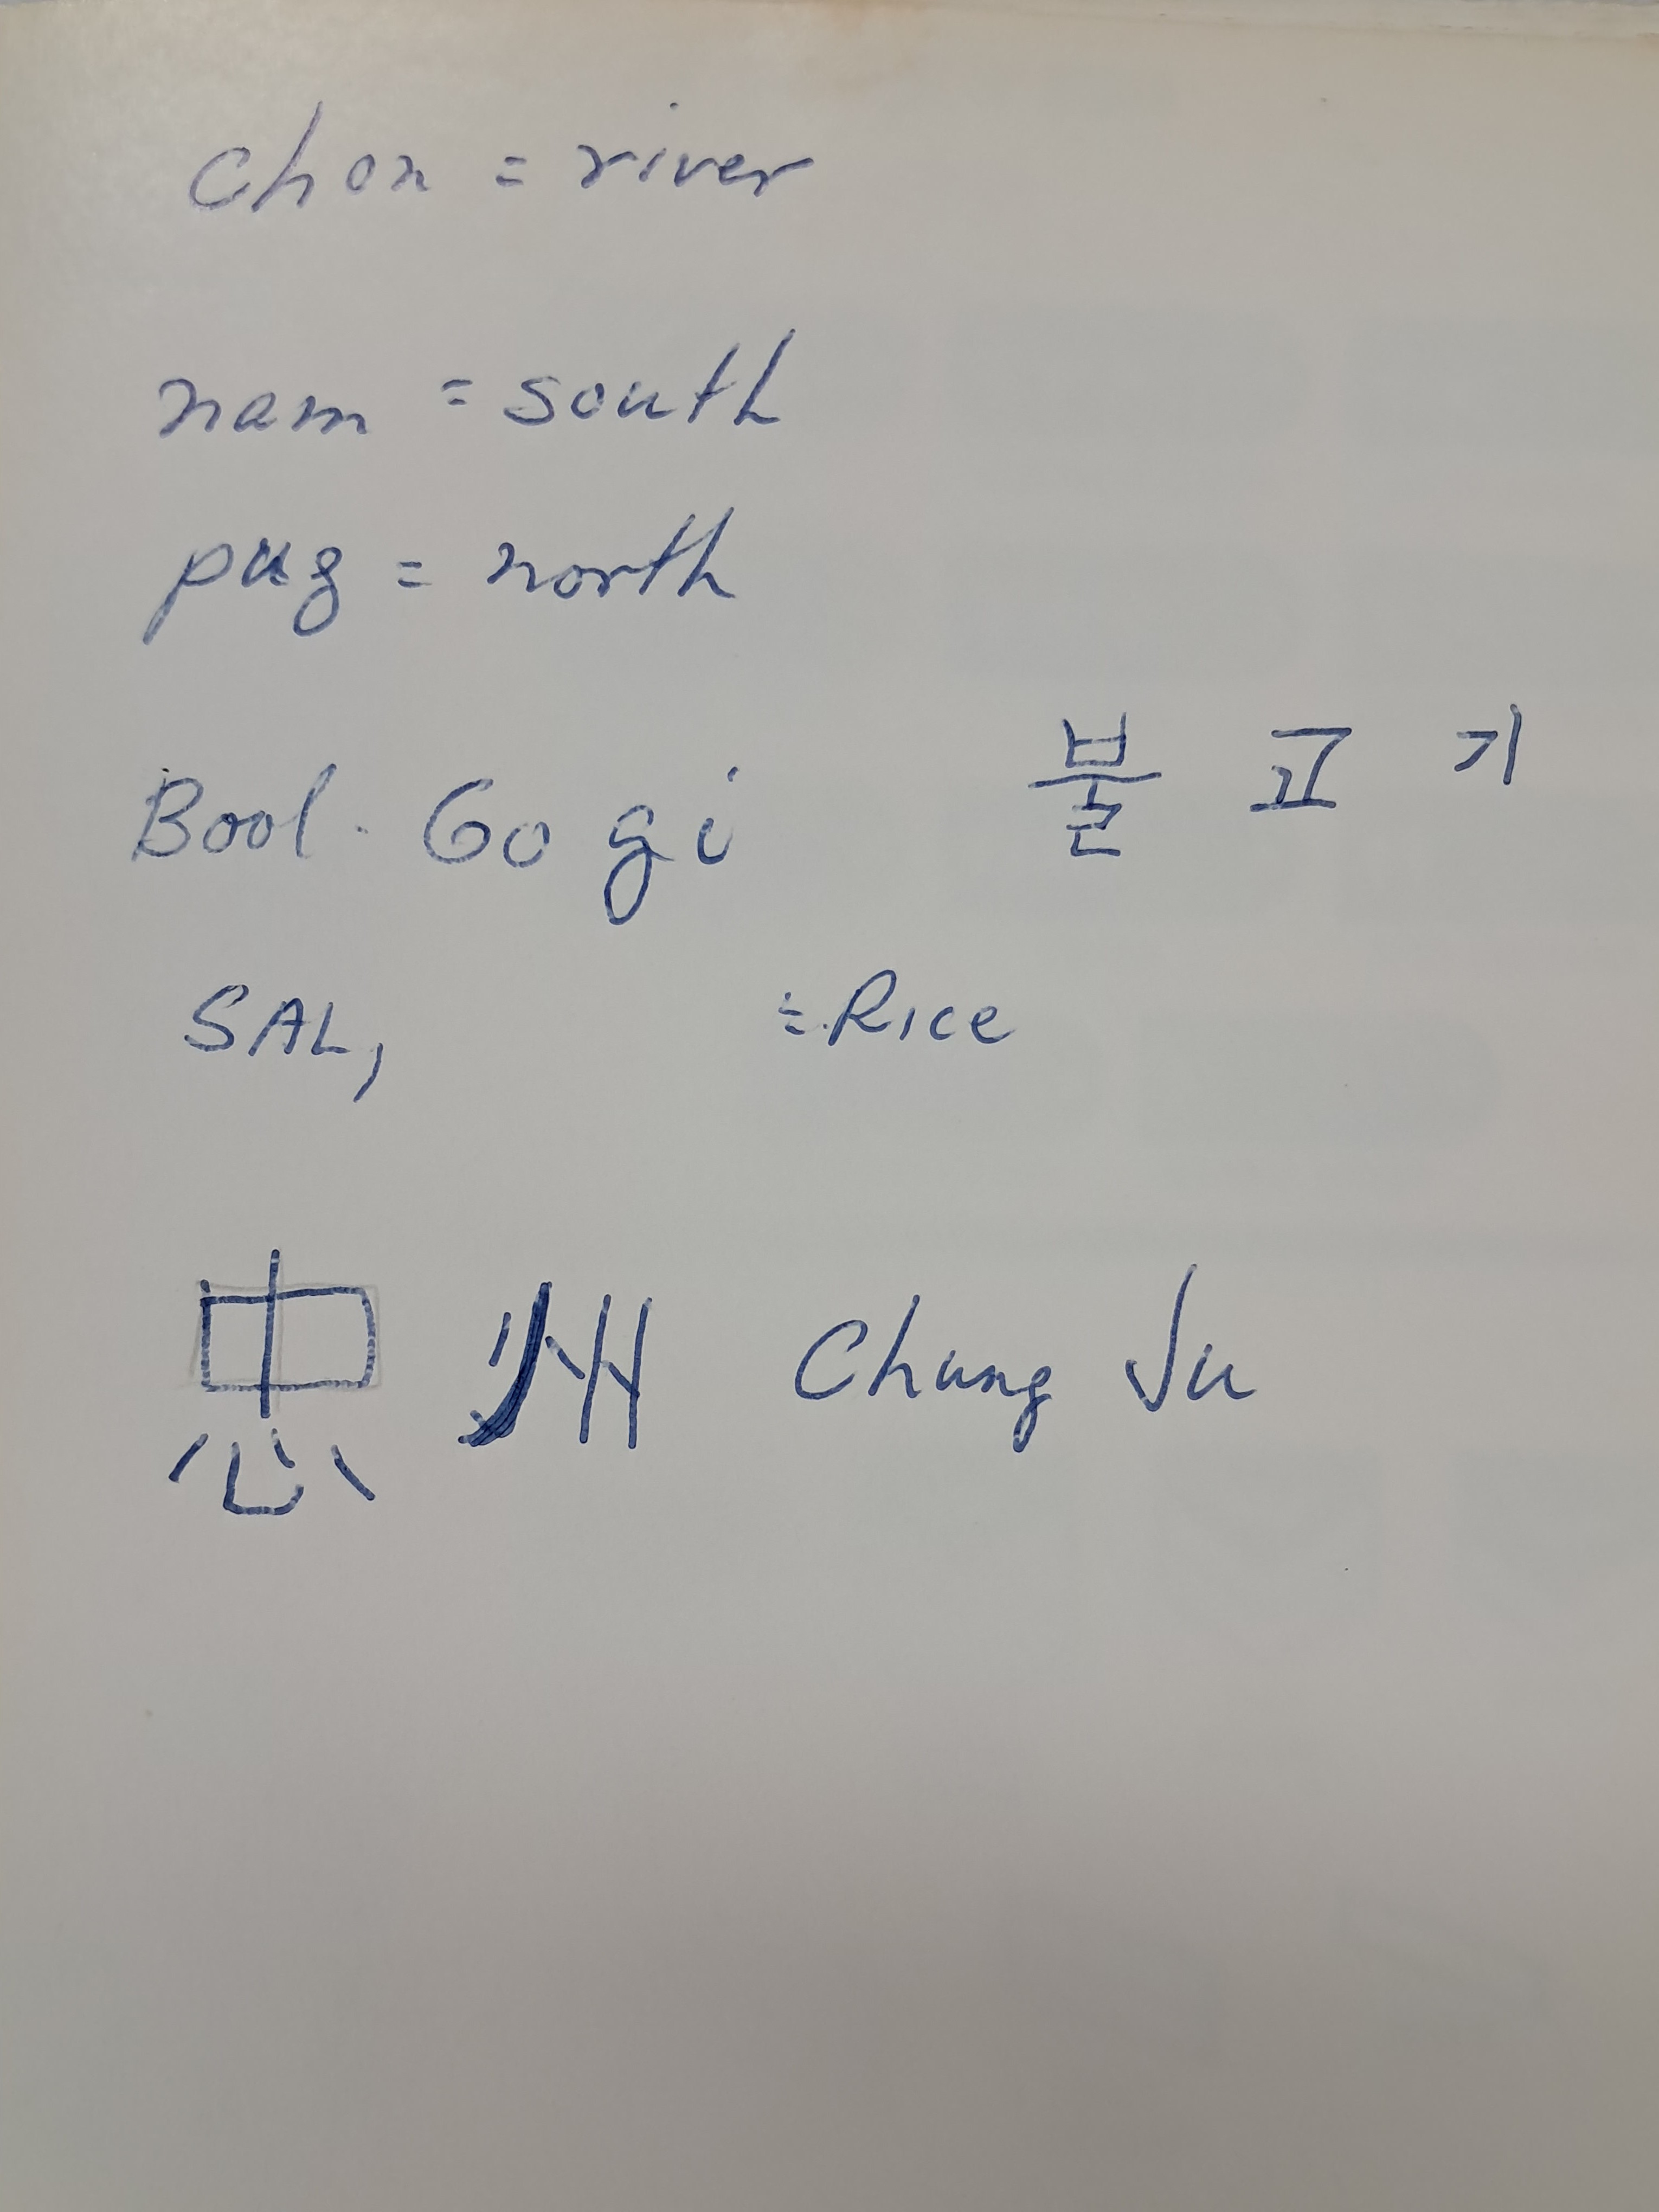 chon = river
nam = south
pug = north
Bool - Go gi 불 교 기
SAL, = Rice
忠 州 Chung Ju